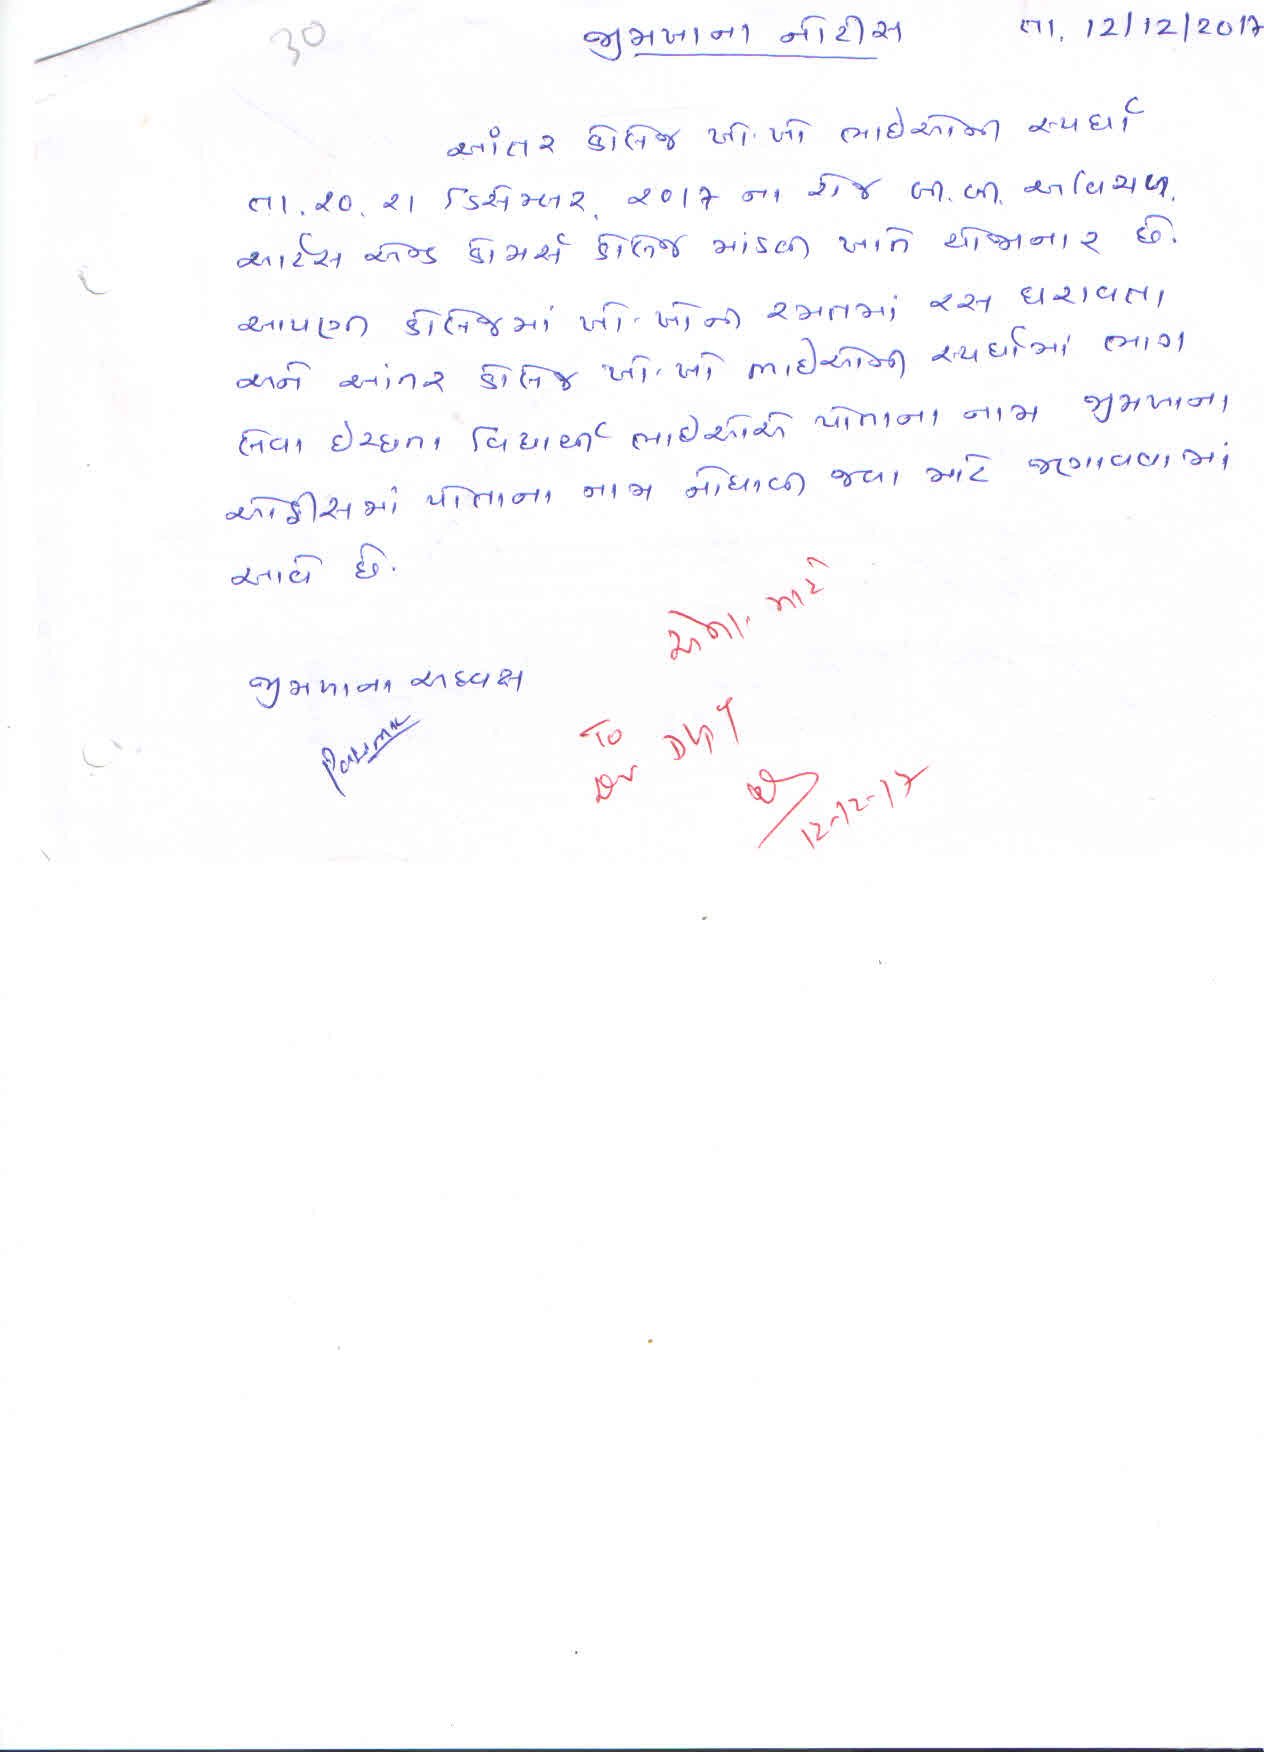 30
જીમખાના નોટીસ
તા. 12/12/2017
આંતર કોલેજ ખો.ખો ભાઈઓની સ્પર્ધા
તા. ૨૦. ૨૧ ડિસેમ્બર, ૨૦૧૭ ના રોજ બી.બી. અવિચળ,
આર્ટસ એન્ડ કોમર્સ કોલેજ માંડવી ખાતે યોજાનાર છે.
આપણી કોલેજમાં ખો.ખોની રમતમાં રસ ધરાવતા
અને આંતર કોલેજ ખો.ખો ભાઈઓની સ્પર્ધામાં ભાગ
લેવા ઈચ્છતા વિદ્યાર્થી ભાઈઓએ પોતાના નામ જીમખાના
ઓફીસમાં પોતાના નામ નોંધાવી જવા માટે જણાવવામાં
આવે છે.
માટે
જીમખાના અધ્યક્ષ
Parmar
To
Dr
12-12-17